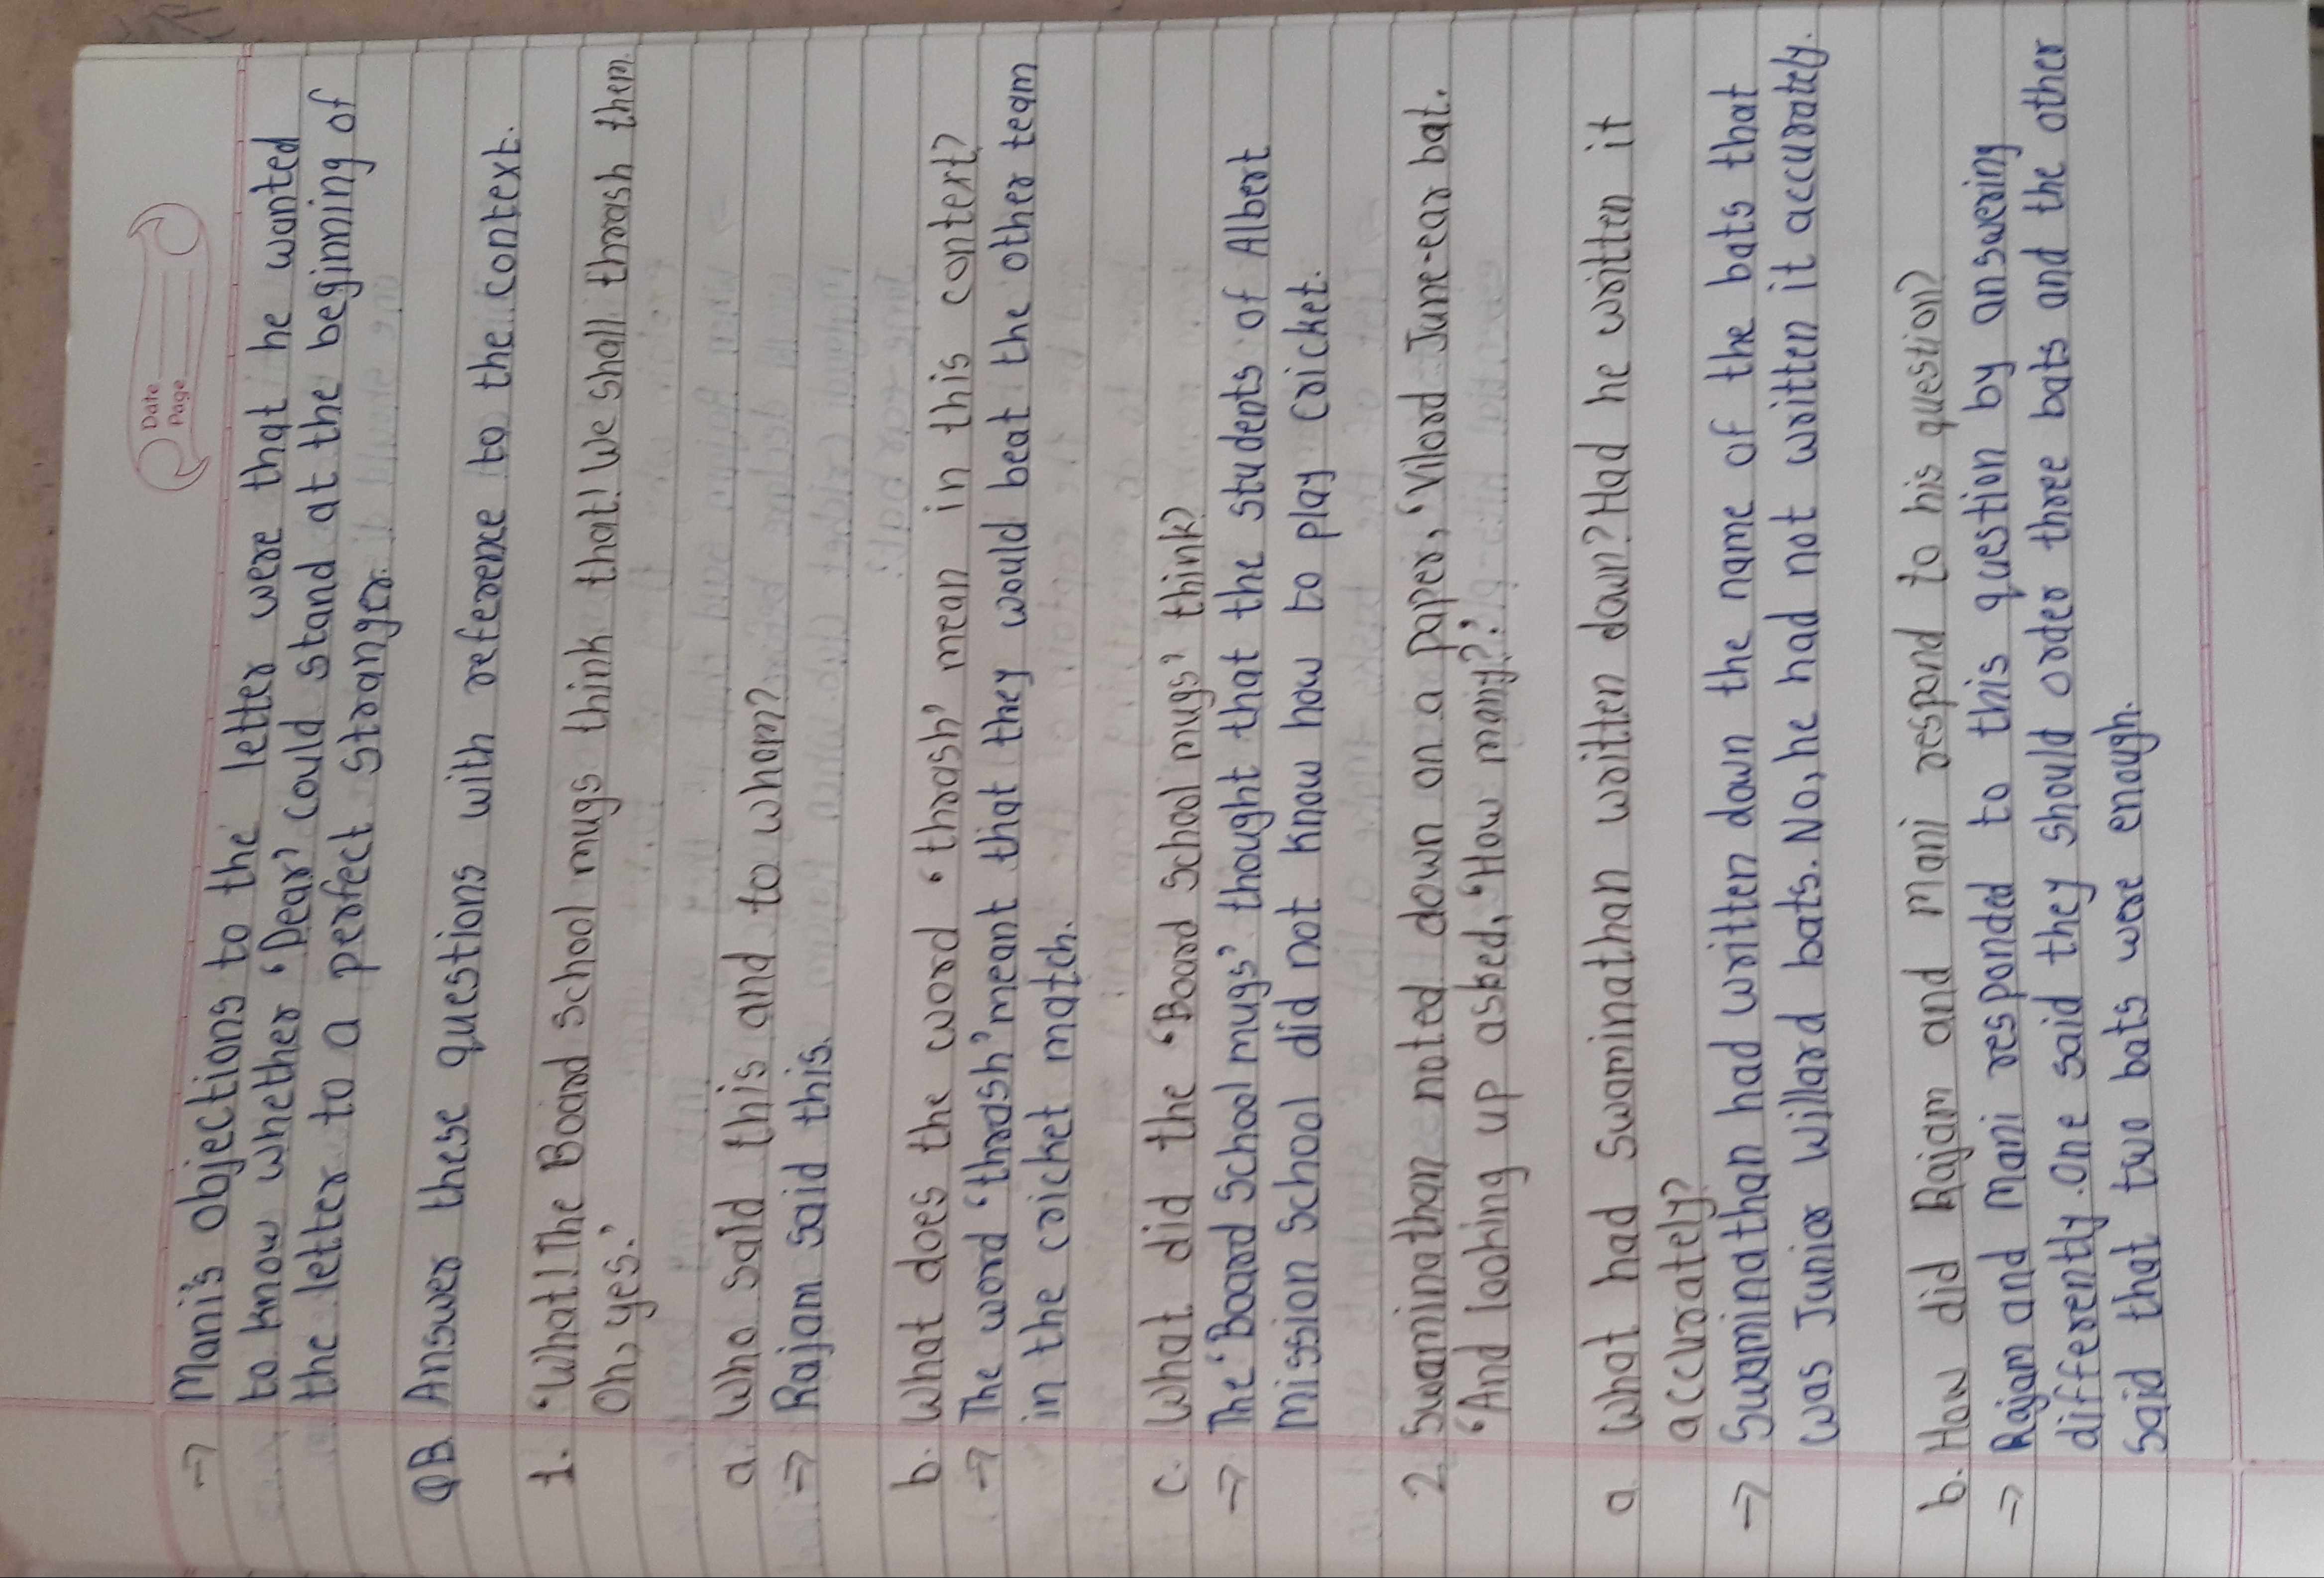 Date
Page
→ Mani's objections to the letter were that he wanted
to know whether 'Dear' could stand at the beginning of
the letter to a perfect stranger.
QB. Answer these questions with reference to the context.
1. 'What! The Board School mugs think that! We shall thrash them.
Oh, yes.'
a. Who said this and to whom?
→ Rajam said this.
b. What does the word 'thrash' mean in this context?
→ The word 'thrash' meant that they would beat the other team
in the cricket match.
c. What did the 'Board School mugs' think?
→ The 'Board School mugs' thought that the students of Albert
Mission School did not know how to play cricket.
2. Swaminathan noted down on a paper, 'Vilard June-ear bat.
'And looking up asked, 'How many?'
a. What had Swaminathan written down? Had he written it
accurately?
→ Swaminathan had written down the name of the bats that
was Junior Willard bats. No, he had not written it accurately.
b. How did Rajam and Mani respond to his question?
→ Rajam and Mani responded to this question by answering
differently. One said they should order three bats and the other
said that two bats were enough.